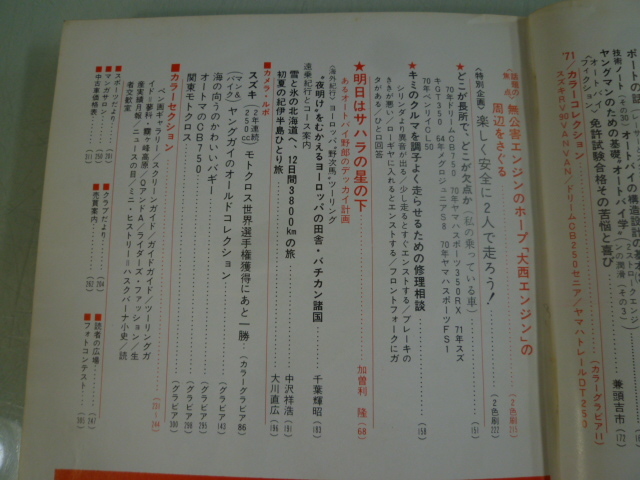 ボートの
技術ノート（その30）オートバイの構造設計の基本
ヤングマンのための基礎“オートバイ学”
フィクション／免許試験合格その苦悩と喜び
兼頭吉市（172）
'71／カラーコレクション
スズキRV90VANVAN／ドリームCB250セニア／ヤマハトレールDT250
（カラーグラビア11）
無公害エンジンのホープ「大西エンジン」の
周辺をさぐる
（2色刷211）
（特別企画）楽しく安全に2人で走ろう！
（2色刷222）
★どこが長所で、どこが欠点か（私の乗っている車）
（151）
70年ドリームCB750　70年ヤマハスポーツ350RX　71年スズ
キGT350　64年メグロジュニアS8　70年ヤマハスポーツFS1
70年ベンリイCL50
★キミのクルマを調子よく走らせるための修理相談
（158）
シリンダより異音が出る／少し走るとすぐエンストする／ブレーキの
ききが悪い／ローギヤに入れるとエンストする／フロントフォークにガ
タがある／ひとロ回答
★明日はサハラの星の下
あるオートバイ野郎のデッカイ計画
加曽利　隆（68）
（海外紀行）ヨーロッパ“野次馬”ツーリング
“夜明け”をむかえるヨーロッパの田舎・バチカン諸国
千葉輝昭（83）
遠乗紀行とコース案内
雪と氷の北海道へ、12日間3800kmの旅
中沢祥浩（191）
初夏の紀伊半島ひとり旅
大川直広（186）
■カメラ・ルポ
スズキ（2年連続250cc）モトクロス世界選手権獲得にあと一勝
（カラーグラビア86）
（マン&バイク）ヤングガイのオールドコレクション
（グラビア143）
海の向うのかわいいバギー
（グラビア295）
オートマのCB750
（グラビア298）
関東モトクロス
（グラビア300）
■カラーセクション
（231〜244）
ペン画ギャラリー／スクリーンガイド／ガイドガイド／ツーリングガ
イド＝夢科・霧ヶ峰高原／QアンドA／ライダーズ・ファッション／生
産実績月報／ニュースの目／ミニ・ヒストリー＝ハスクバーナ小史／読
者文歓室
■スポーツだより（251）
■マンガサロン（231）
■中古車価格表（256）
■クラブだより（284）
■売買案内（292）
■読者の広場（247）
■フォトコンテスト（305）